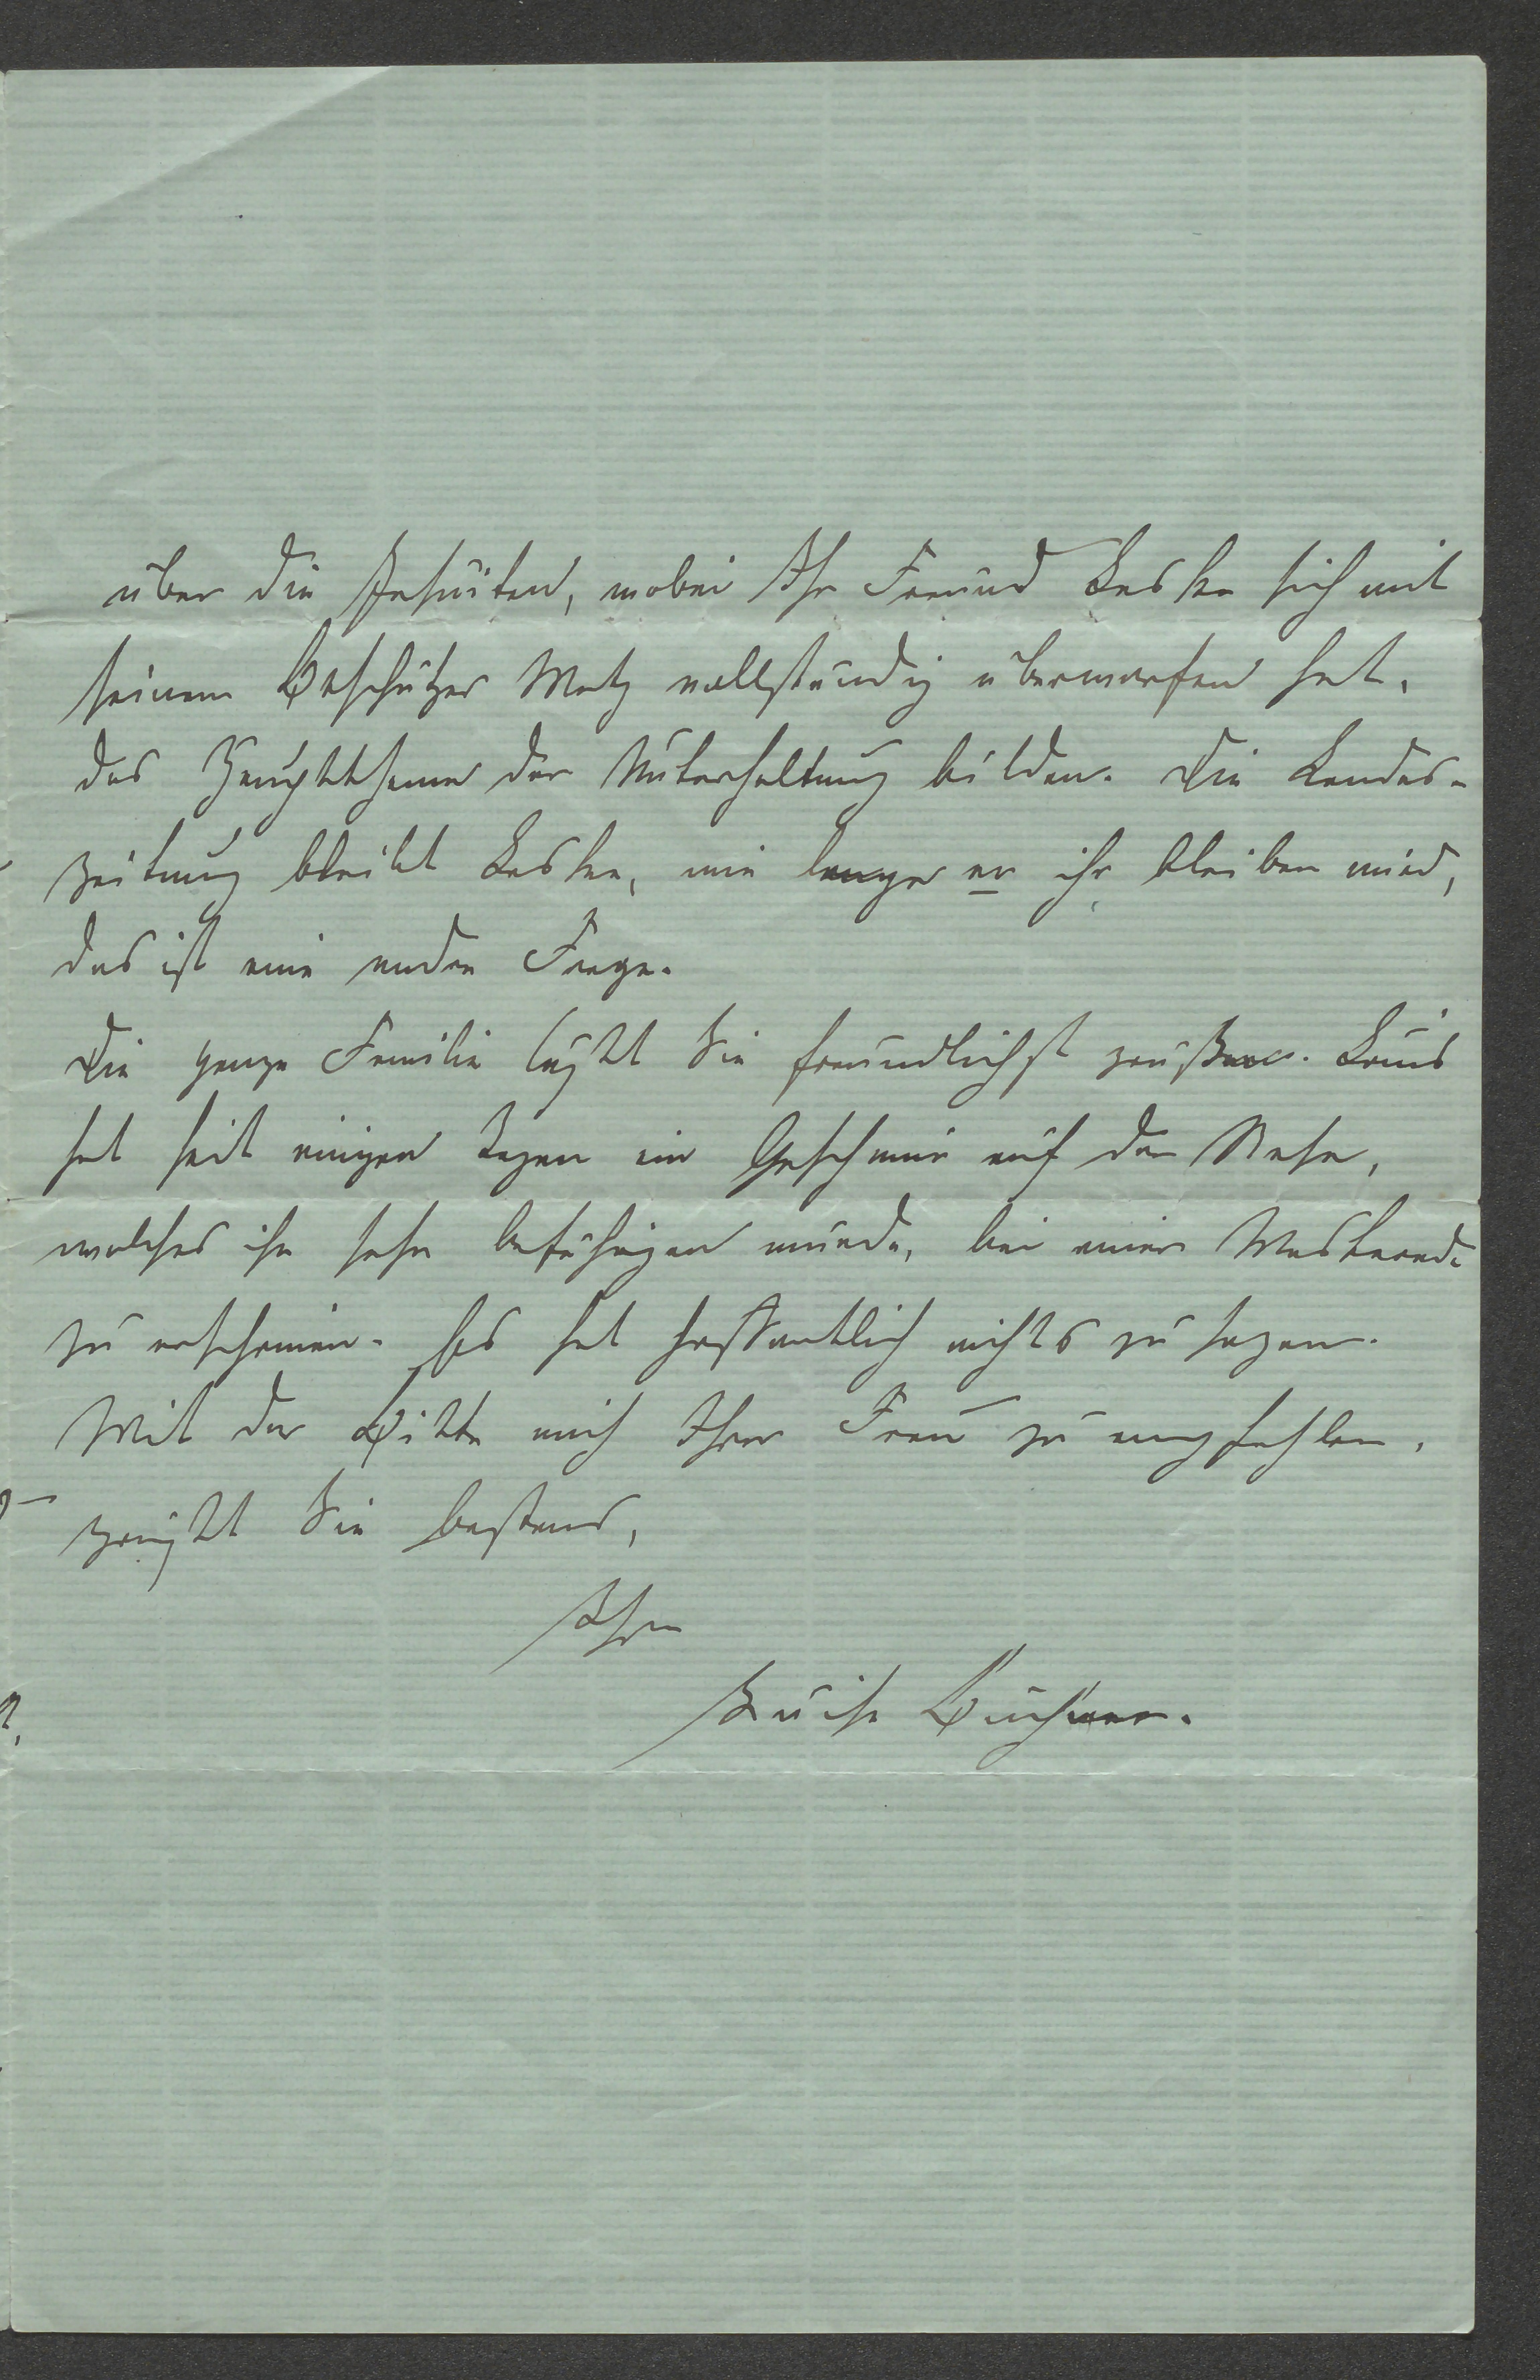 über die Jesuiten, wobei Ihr Freund Leske sich mit
seinem Beschützer Metz vollständig überworfen hat,
das Hauptthema der Unterhaltung bilden. Die Landes-
zeitung bleibt Leske, wie lange er ihr bleiben wird,
das ist eine andere Frage.
Die ganze Familie läßt Sie freundlichst grüßen. Louis
hat seit einigen Tagen ein Geschwür auf der Nase,
welches ihn sehr befähigen würde, bei einer Maskerade
zu erscheinen. Es hat hoffentlich nichts zu sagen.
Mit der Bitte mich Ihrer Frau zu empfehlen,
grüßt Sie bestens,
Ihre
Luise Büchner.